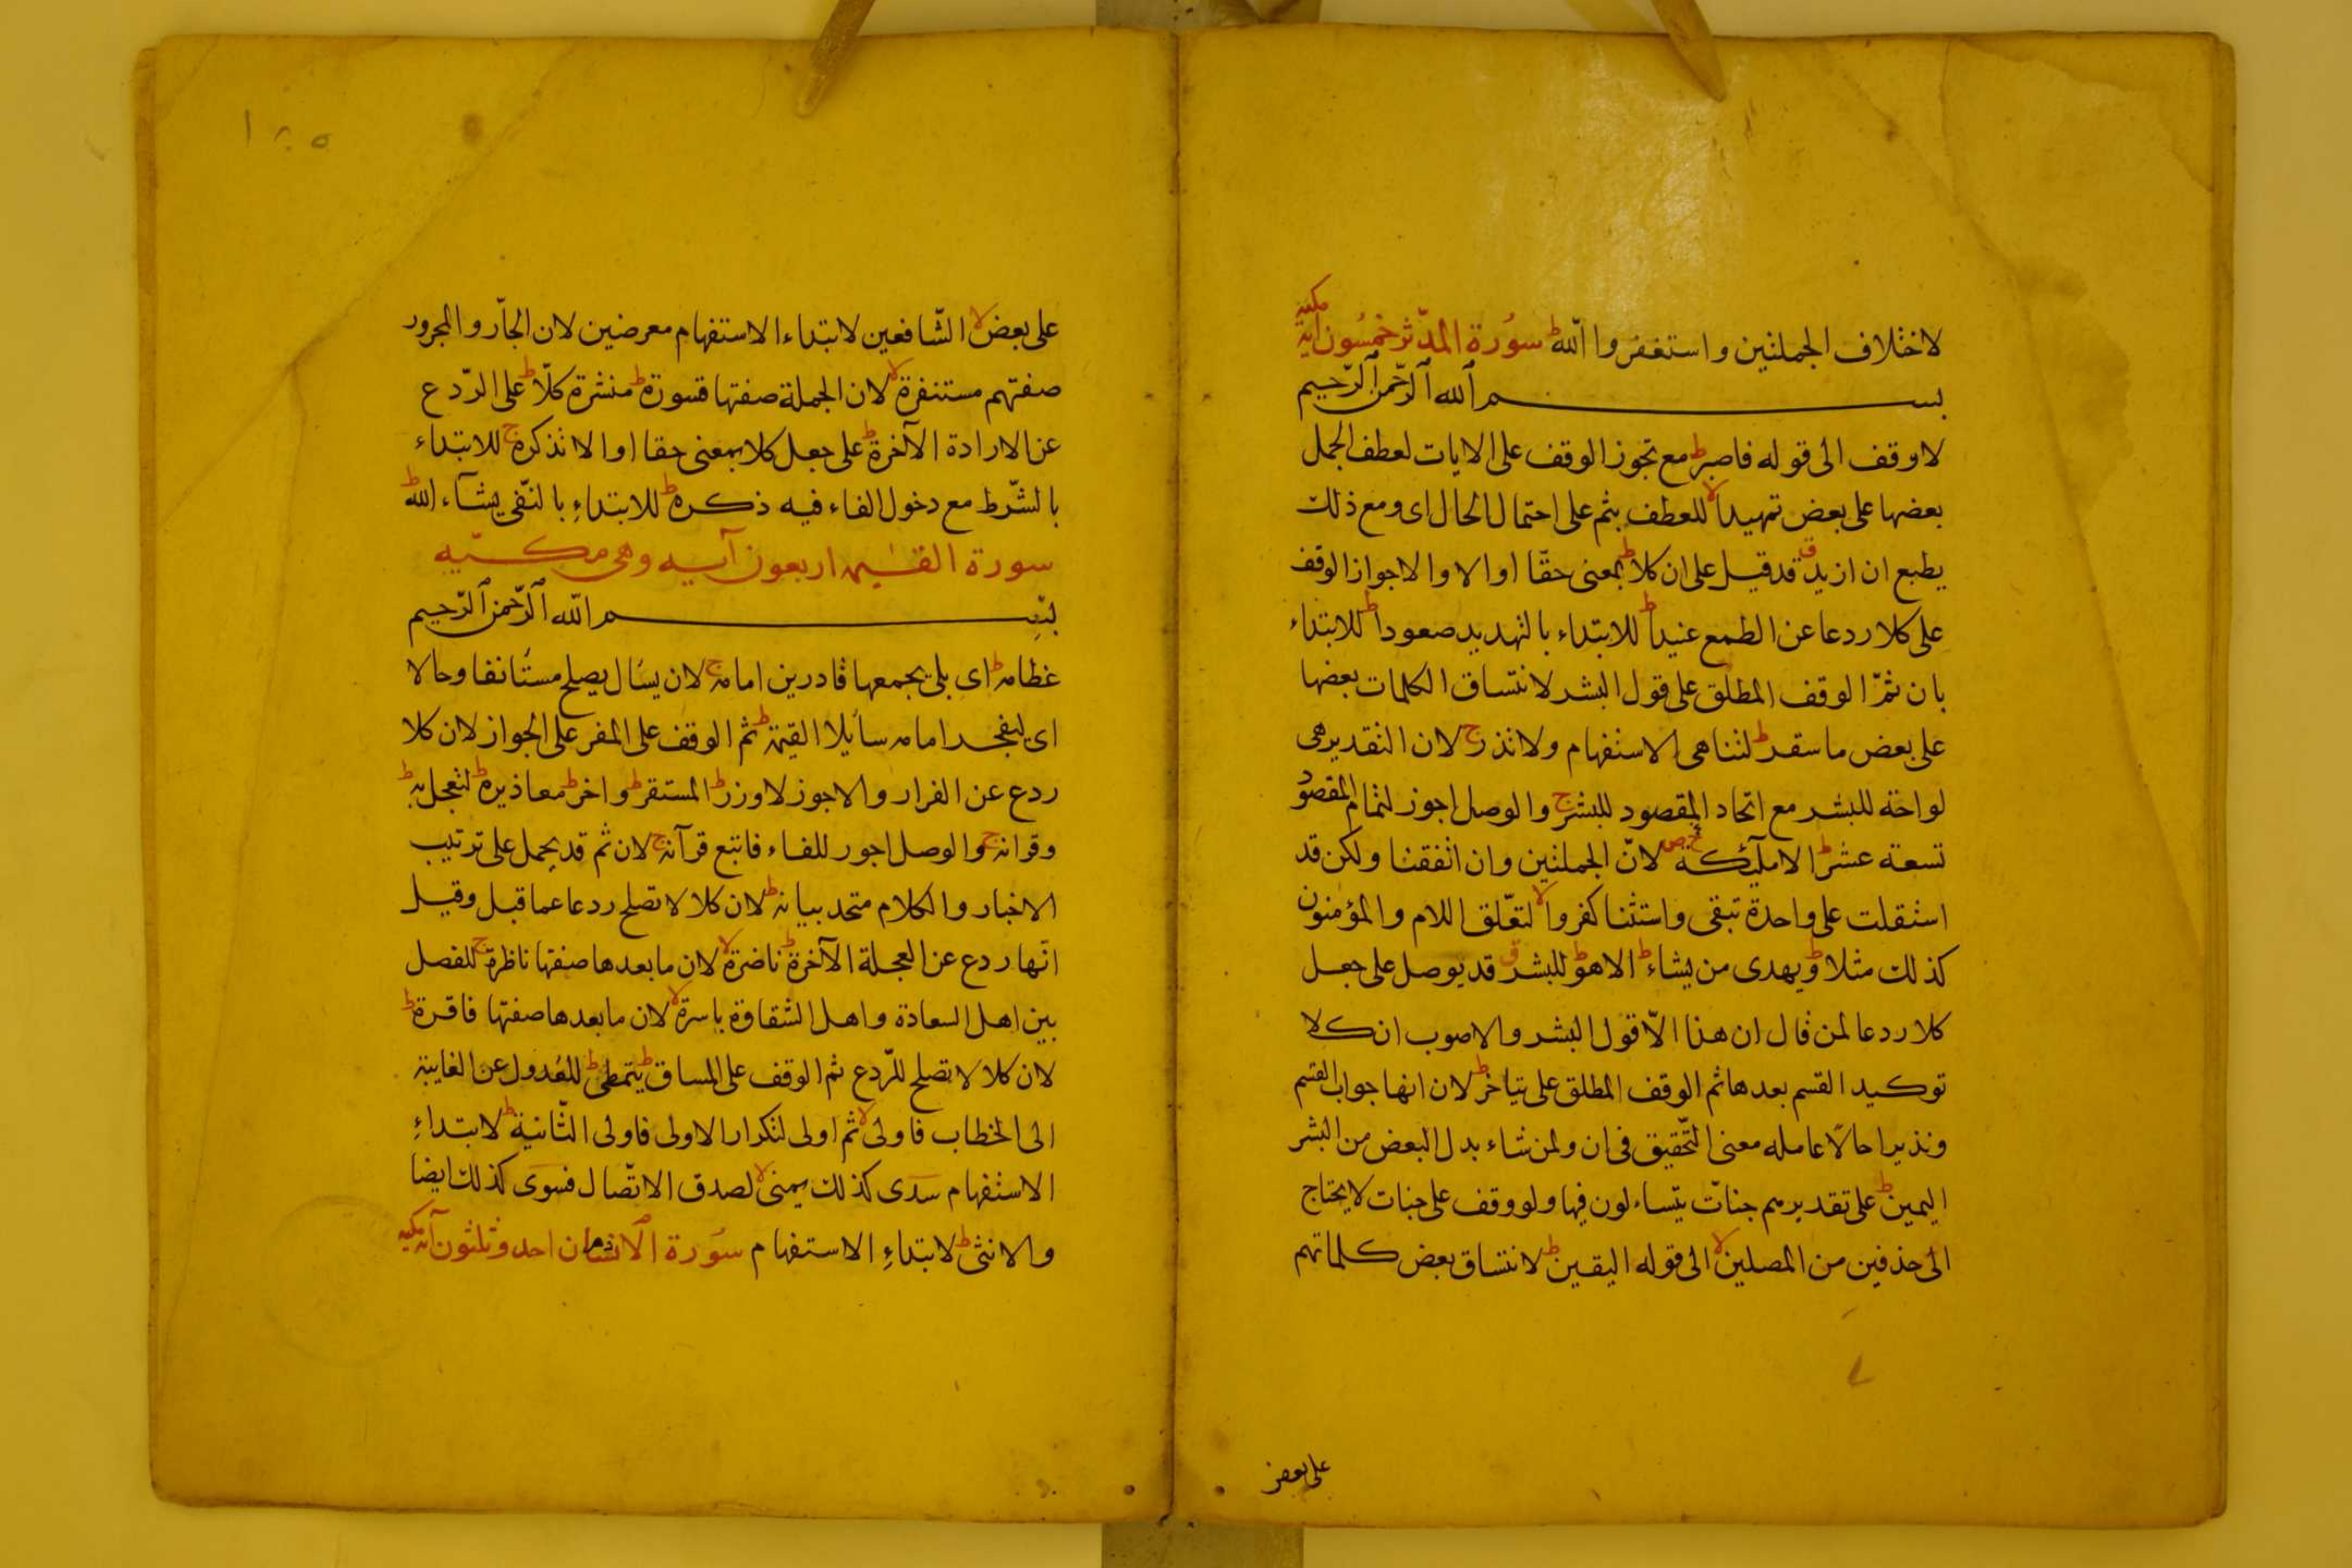 لاختلاف الجملتين واستغفروا اللّه ط سورة المدّثر خمسون آية مكية
بسم الله الرّحمن الرّحيم
لا وقف الى قوله فاصبر ط مع تجوز الوقف على الايات لعطف الجمل
بعضها على بعض تمهيدا لا للعطف بثم على احتمال الحال اى ومع ذلك
يطمع ان ازيد ق قد قيل على ان كلا ط بمعنى حقّا او الا والا جواز الوقف
على كلا ردعا عن الطمع عنيدا ط للابتداء بالتهديد صعودا ط للابتداء
بان ثمّ الوقف المطلق على قول البشر لانتساق الكلمات بعضها
على بعض ما سقر ط لتناهى الاستفهام ولا تذر ج لان التقدير هى
لواحة للبشر مع اتحاد المقصود للبشر ج والوصل اجوز لتمام المقصود
تسعة عشر ط الا ملٓئكة ص لانّ الجملتين وان اتفقتا ولكن قد
استقلت على واحدة تبقى واستثنا كفروا لا لتعّلق اللام والمؤمنون
كذلك مثلا ط ويهدى من يشاء ط الا هو ط للبشر ق قد يوصل على جعل
كلا ردعا لمن قال ان هذا الّا قول البشر والاصوب ان كلا
توكيد القسم بعدها ثم الوقف المطلق على يتاخر ط لان انها جواب القسم
ونذيرا حالا عامله معنى التّحقيق فى ان ولمن شاء بدل البعض من البشر
اليمين ط على تقدير هم جنات يتساءلون فيها ولو وقف على جنات لا يحتاج
الى حذفين من المصلين لا الى قوله اليقين ط لانتساق بعض كلماتهم
على بعض
١٨٥
على بعض لا الشّافعين لابتداء الاستفهام معرضين لان الجاّر والمجرور
صفتهم مستنفرة لا لان الجملة صفتها قسورة ط منشرة كلّا ط على الرّدع
عن الارادة الآخرة ط على جعل كلا بمعنى حقا او الا تذكرة ج للابتداء
بالشّرط مع دخول الفاء فيه ذكره ط للابتداءِ بالنّفى يشآء اللّه ط
سورة القيٰمه اربعون آيه وهى مكّيه
بسم اللّه الرّحمن الرّحيم
عظامه ط اى بلى يجمعها قادرين امامه ج لان يسال يصلح مستأنفا وحالا
اى ليفجر امامه سايلا القيمة ط ثم الوقف على المفر على الجواز لان كلا
ردع عن الفرار والاجوز لا وزر ط المستقر ط واخر ط معاذيره ط لتعجل به ط
وقرانه ج والوصل اجوز للفاء فاتبع قرآنه ج لان ثم قد يحمل على ترتيب
الاخبار والكلام متحد بيانه ط لان كلا لا تصلح ردعا عما قبل وقيل
انّها ردع عن العجلة الآخرة ط ناضرة لا لان ما بعدها صفتها ناظرة ج للفصل
بين اهل السعادة واهل الشقاوة باسرة لا لان ما بعدها صفتها فاقرة ط
لان كلا لا تصلح للرّدع ثم الوقف على المساق ط يتمطى ط للعُدول عن الغايبة
الى الخطاب فاولى لا ثم اولى لتكرار الاولى فاولى الثّانية ط لابتداءِ
الاستفهام سدى كذلك يمنى لا لصدق الاتّصال فسوى كذلك ايضا
والانثى ط لابتداءِ الاستفهام سُورة الانسان احد وثلثون آية مكية